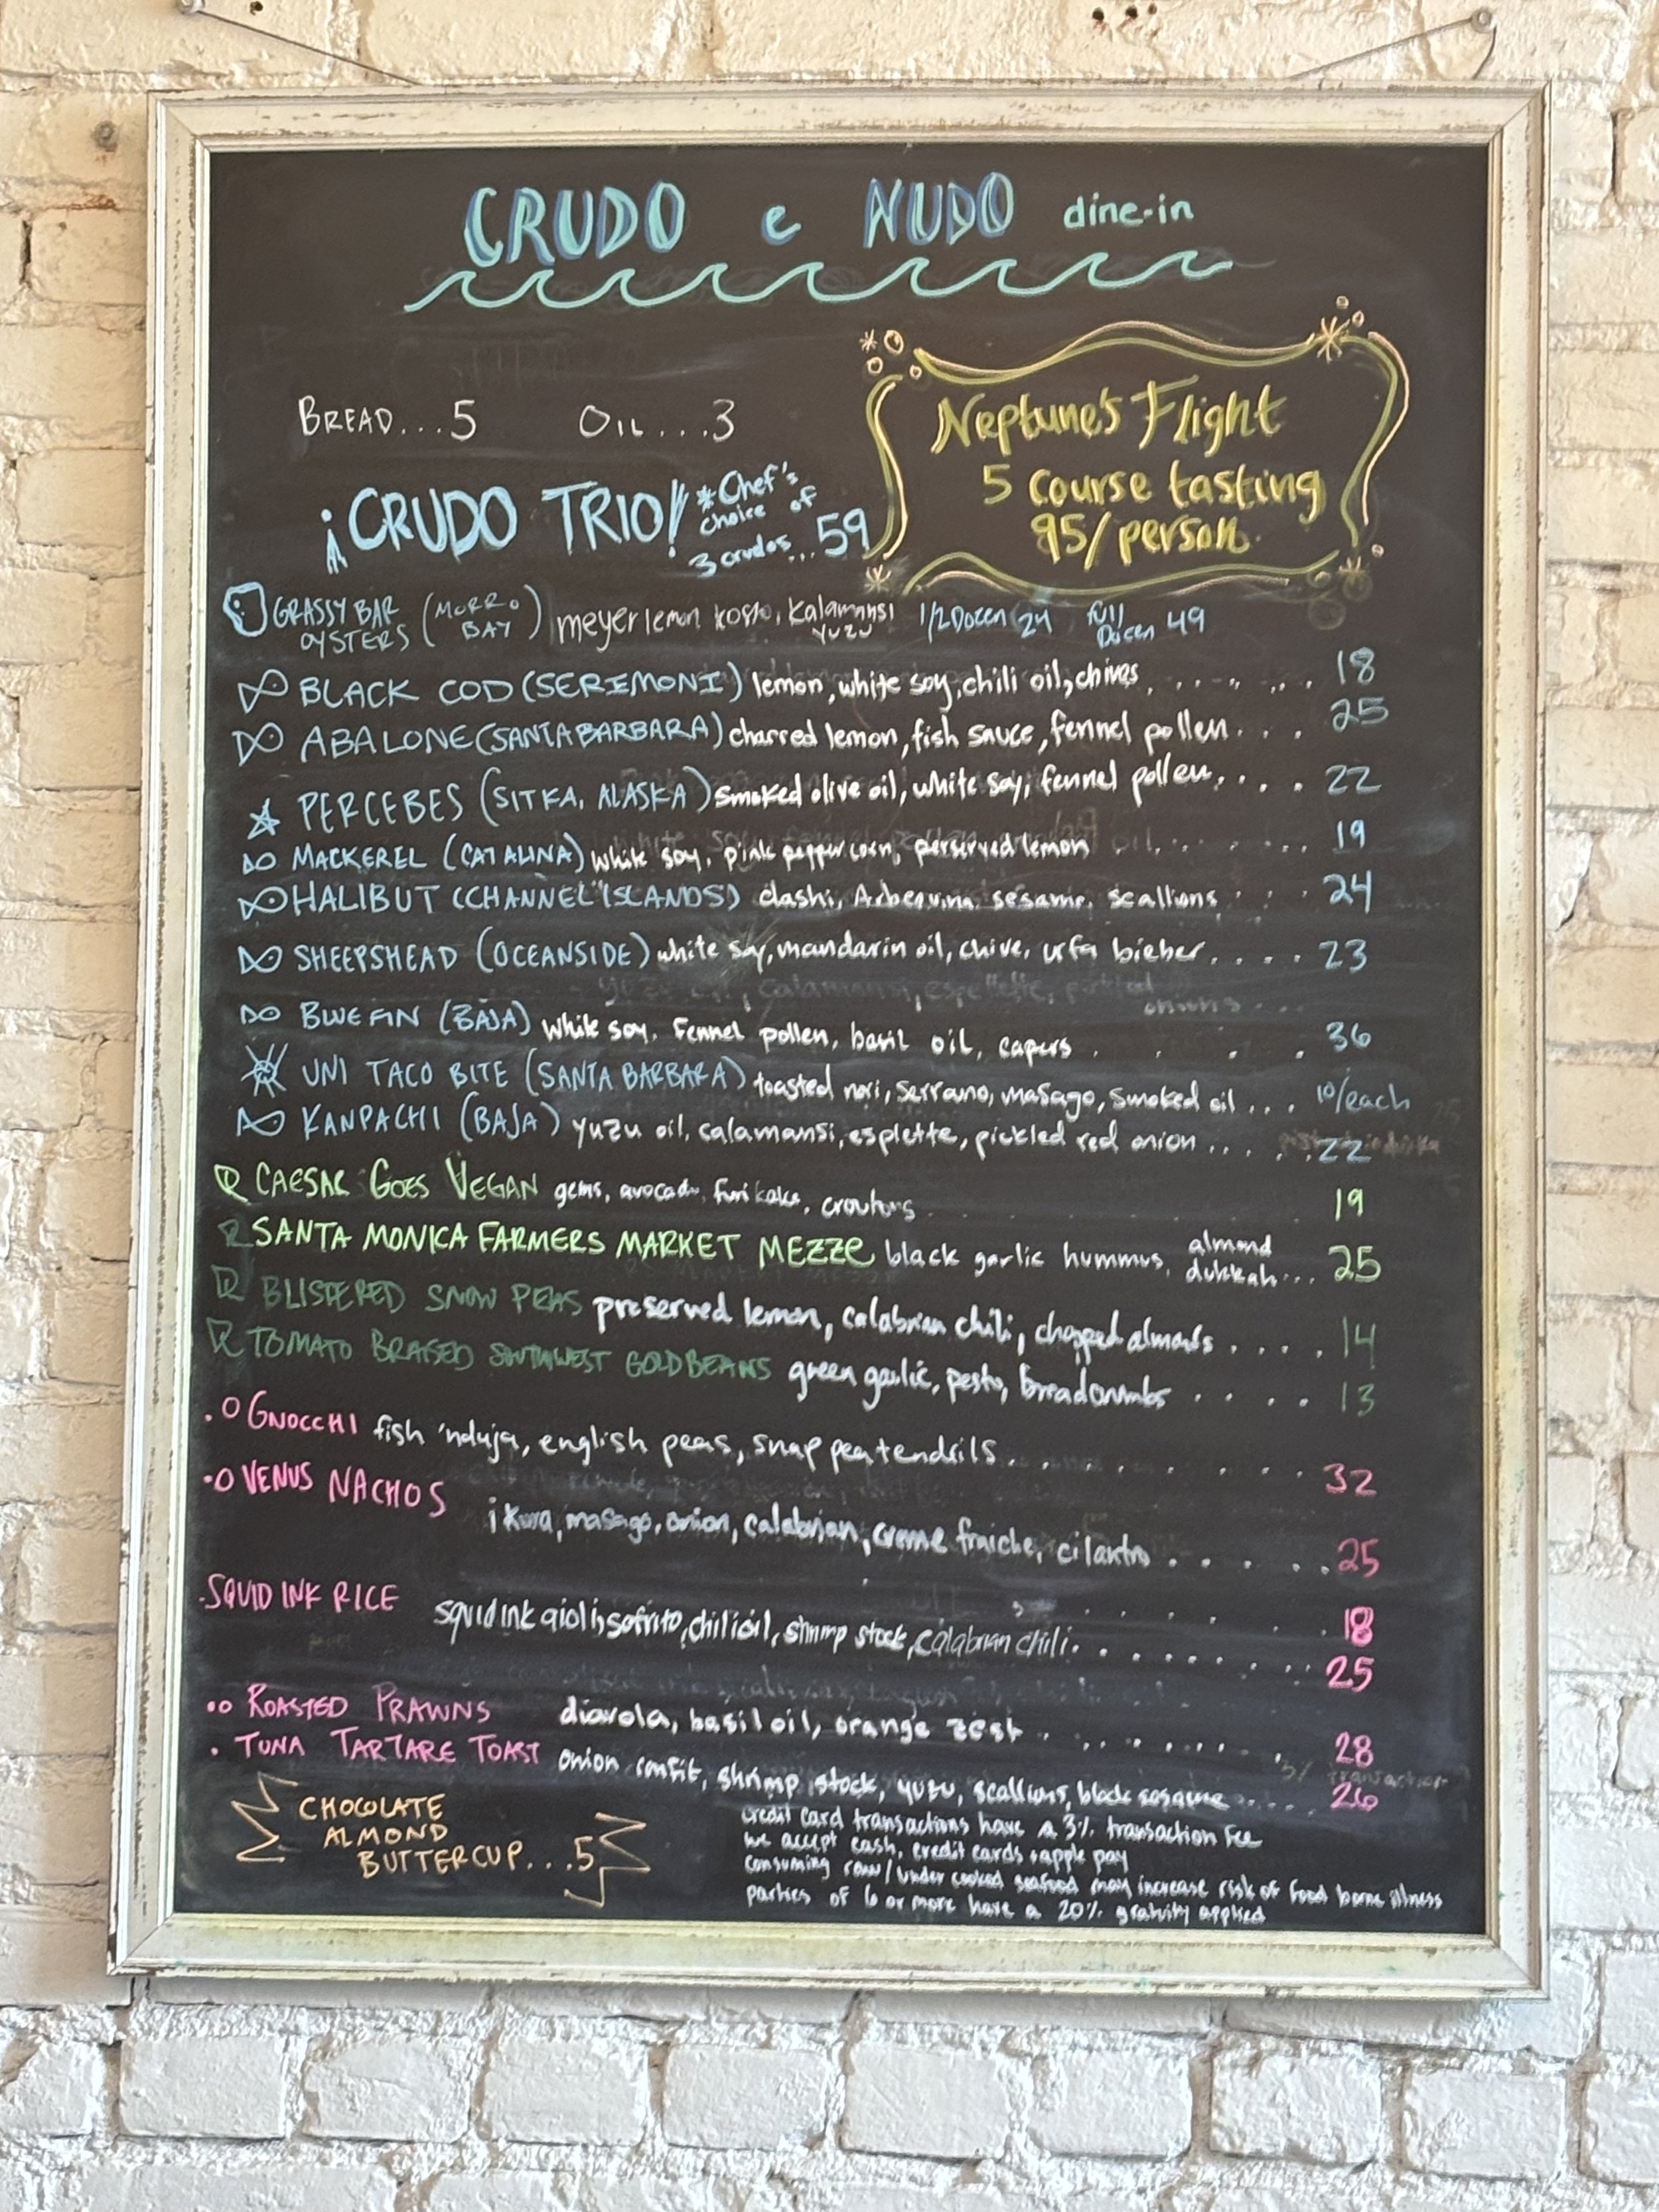 CRUDO e NUDO dine-in
BREAD...5 OIL...3
Neptune's Flight
5 course tasting
95/person
¡CRUDO TRIO! *Chef's choice of 3 crudos...59
GRASSY BAR OYSTERS (MORRO BAY) meyer lemon kosho, Kalamansi YUZU 1/2 Dozen 24 full Dozen 49
BLACK COD (SERIMONI) lemon, white soy, chili oil, chives....... 18
ABALONE (SANTA BARBARA) charred lemon, fish sauce, fennel pollen... 25
PERCEBES (SITKA, ALASKA) smoked olive oil, white soy, fennel pollen.... 22
MACKEREL (CATALINA) white soy, pink peppercorn, perserved lemon ..... 19
HALIBUT (CHANNEL ISLANDS) dashi, Arbequina, sesame, scallions ... 24
SHEEPSHEAD (OCEANSIDE) white soy, mandarin oil, chive, urfa bieber.... 23
BLUEFIN (BAJA) white soy, fennel pollen, basil oil, capers .... 36
UNI TACO BITE (SANTA BARBARA) toasted nori, serrano, masago, smoked oil... 10/each
KANPACHI (BAJA) yuzu oil, calamansi, esplette, pickled red onion..... 22
CAESAR GOES VEGAN gems, avocado, furikake, croutons 19
SANTA MONICA FARMERS MARKET MEZZE black garlic hummus, almond dukkah... 25
BLISTERED SNOW PEAS preserved lemon, calabrian chili, chopped almonds..... 14
TOMATO BRAISED SOUTHWEST GOLD BEANS green garlic, pesto, breadcrumbs .... 13
.O GNOCCHI fish 'nduja, english peas, snap pea tendrils......... 32
.O VENUS NACHOS ikura, masago, onion, calabrian, creme fraiche, cilantro ...... 25
.SQUID INK RICE ...... 18
squid ink aioli, sofrito, chili oil, shrimp stock, calabrian chili......... 25
..o ROASTED PRAWNS diavola, basil oil, orange zest......... 28
. TUNA TARTARE TOAST onion confit, shrimp stock, yuzu, scallions, black sesame..... 26
CHOCOLATE
ALMOND
BUTTERCUP...5
credit card transactions have a 3% transaction fee
we accept cash, credit cards + apple pay
consuming raw/under cooked seafood may increase risk of food borne illness
parties of 6 or more have a 20% gratuity applied